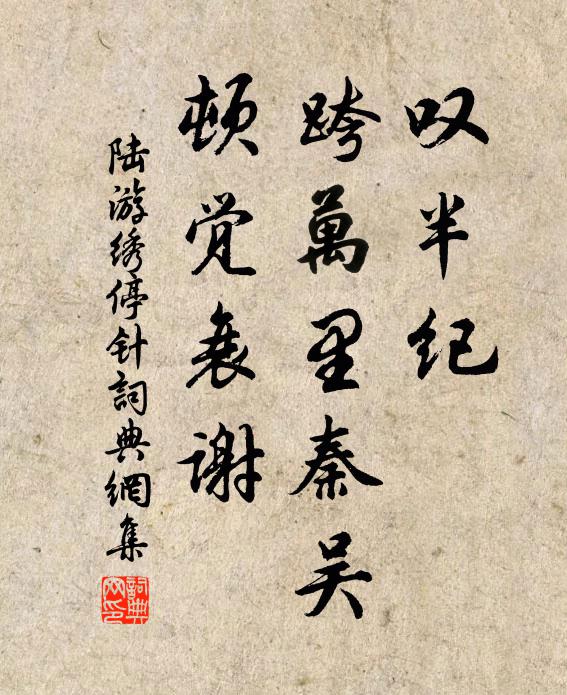 叹半纪
跨萬里秦吴
顿觉衰谢
陆游绣停针詞典網集
詞典
网印